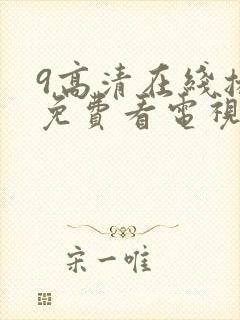 9高清在线
免費看電視
宋一唯